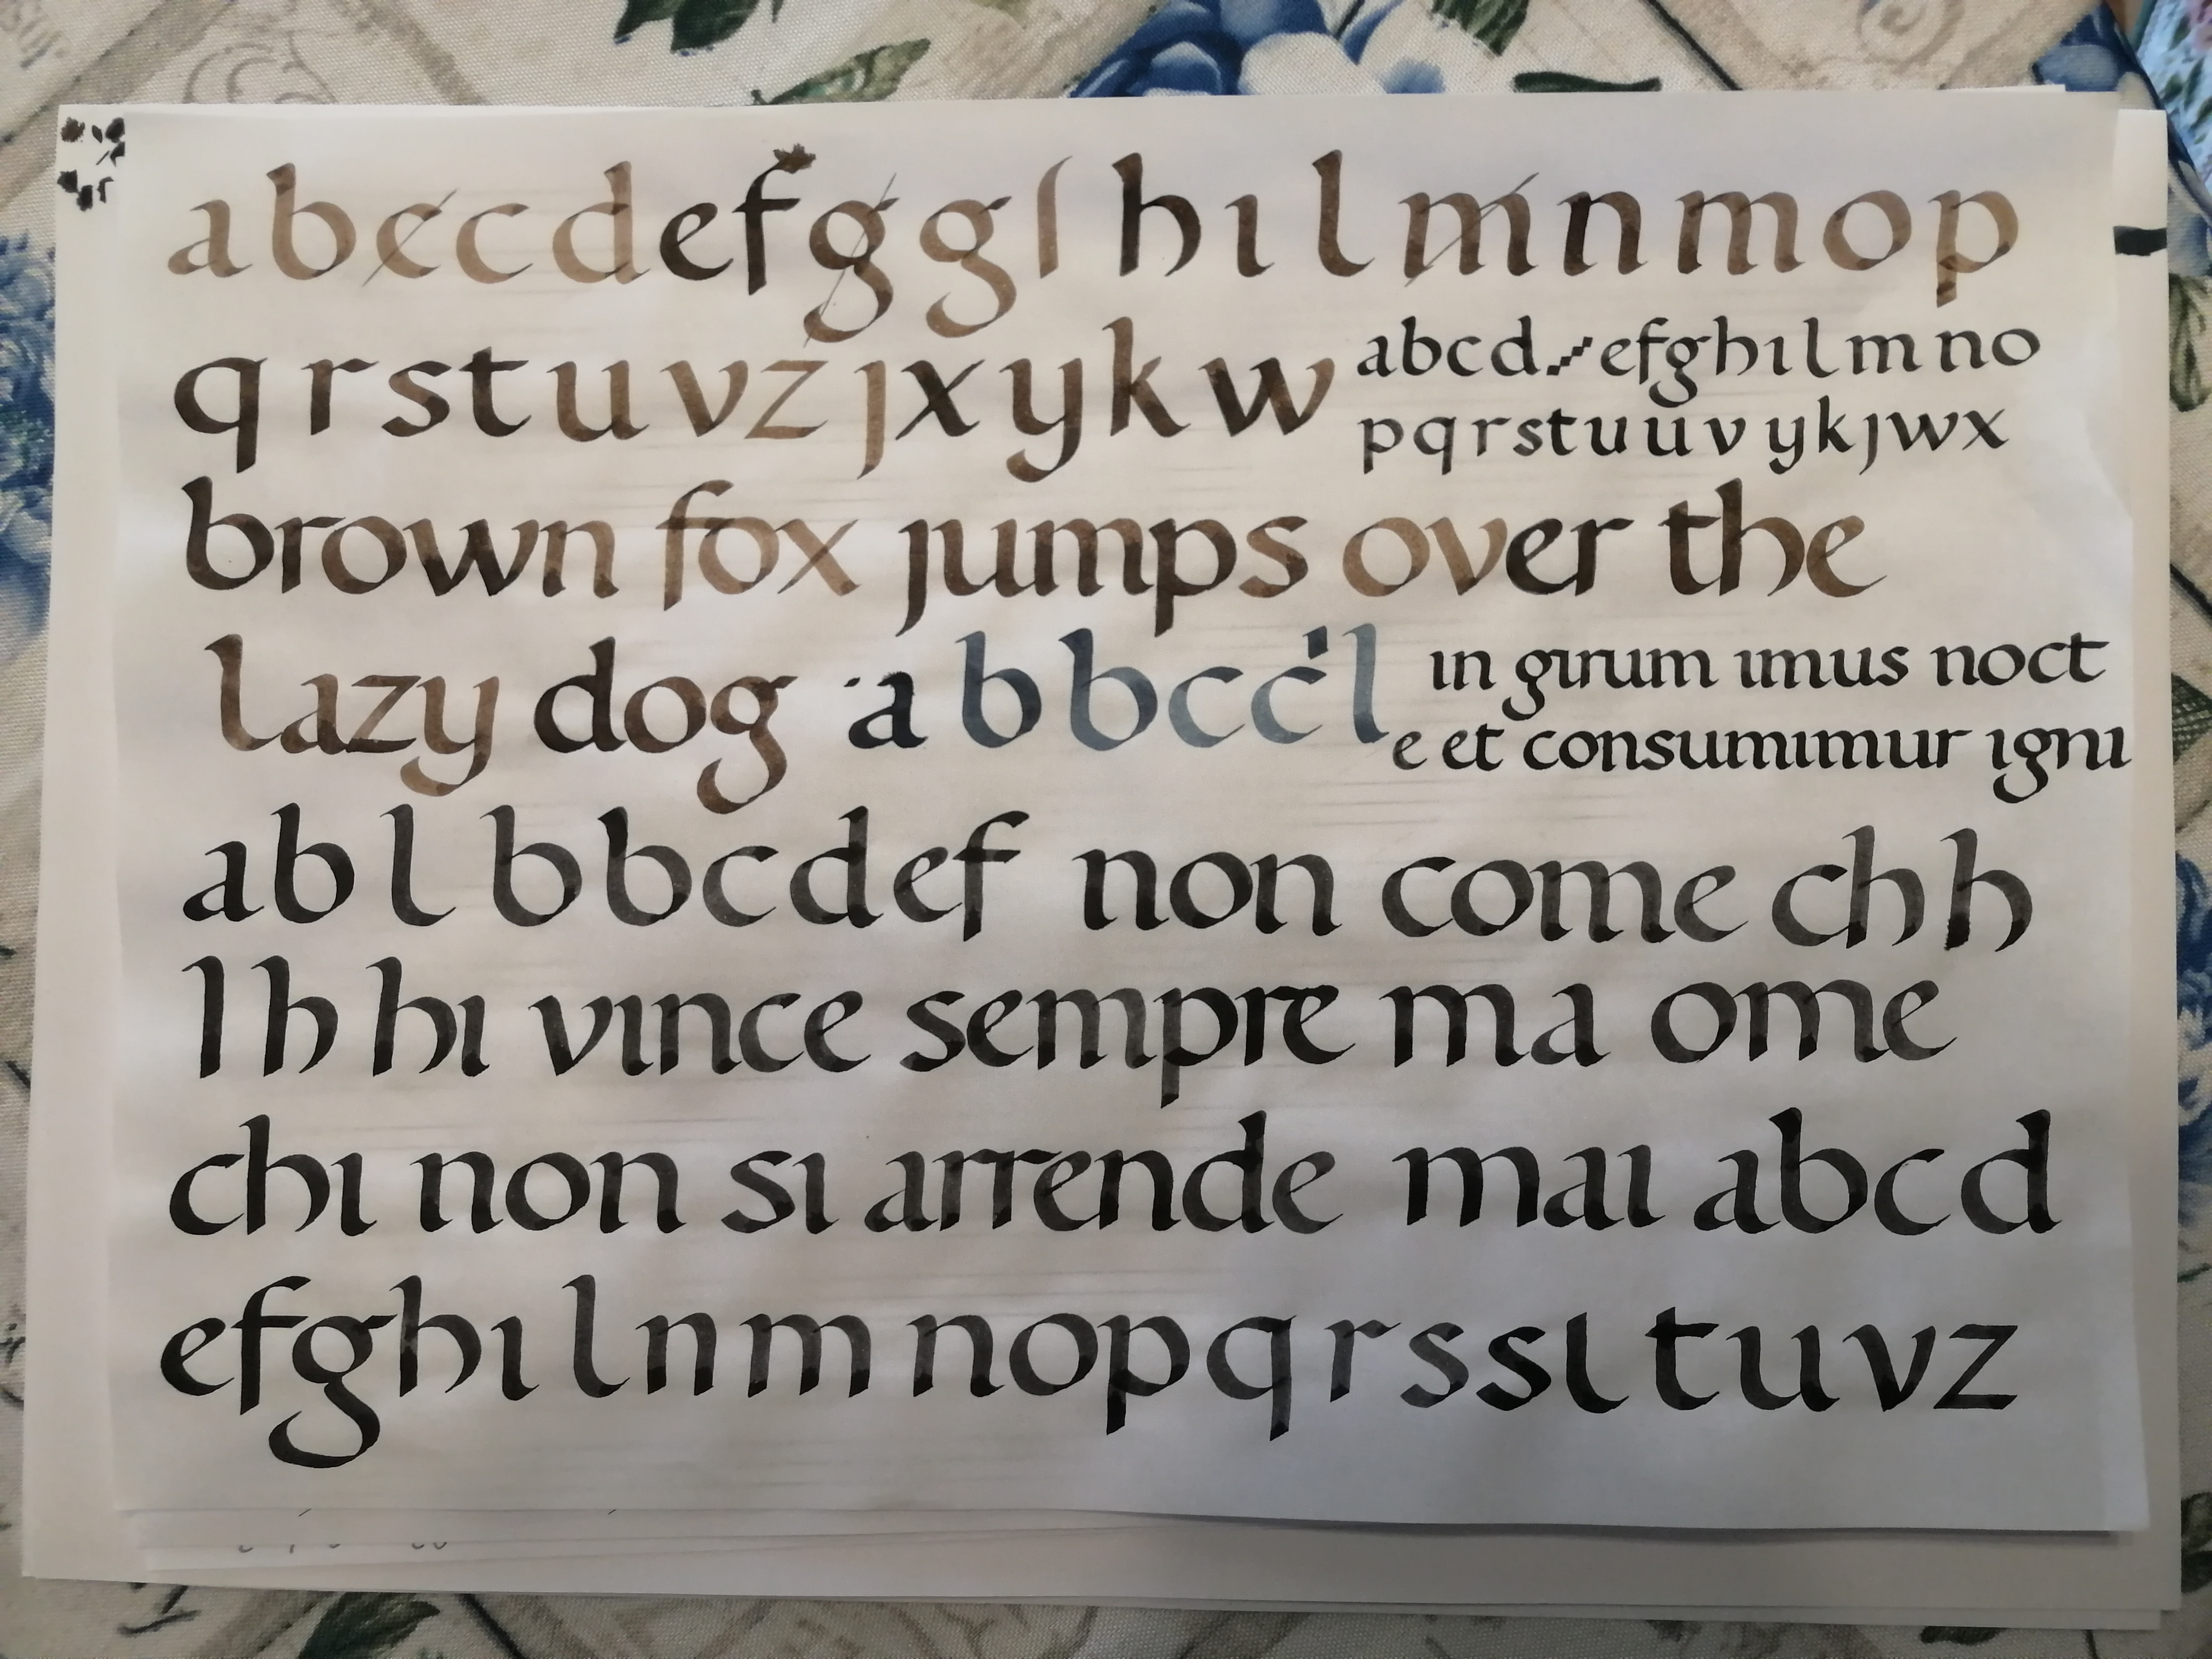 abccdefggl hılmnmop
qrstuvzjxykw
abcdefghılmno
pqrstuuvykjwx
brown fox jumps over the
lazy dog a b b c c l
ın gırum ımus noct
e et consumımur ıgnı
ab l b b c d e f non come ch h
l h hı vınce sempre ma ome
chı non sı arrende maı abcd
efghılnmnopqrssı tuvz